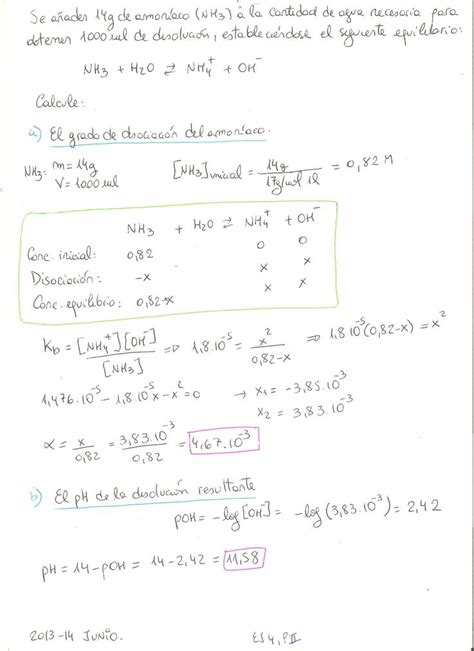 Se añaden 14g de amoníaco (NH3) a la cantidad de agua necesaria para
obtener 1000 ml de disolución, estableciéndose el siguiente equilibrio:
NH3 + H2O ⇄ NH4+ + OH-
Calcule:
a) El grado de disociación del amoníaco.
NH3: m = 14g
V = 1000 ml
[NH3]inicial = 14g / 17g/mol 1l = 0,82 M
NH3 + H2O ⇄ NH4+ + OH-
Conc. inicial: 0,82 0 0
Disociación: -x x x
Conc. equilibrio: 0,82-x x x
Kb = [NH4+][OH-] / [NH3] ⇒ 1,8·10^-5 = x^2 / 0,82-x ⇒ 1,8·10^-5(0,82-x) = x^2
1,476·10^-5 - 1,8·10^-5x - x^2 = 0 → x1 = -3,85·10^-3
x2 = 3,83·10^-3
α = x / 0,82 = 3,83·10^-3 / 0,82 = 4,67·10^-3
b) El pH de la disolución resultante
pOH = -log[OH-] = -log(3,83·10^-3) = 2,42
pH = 14 - pOH = 14 - 2,42 = 11,58
2013-14 JUNIO. EJ4, PII